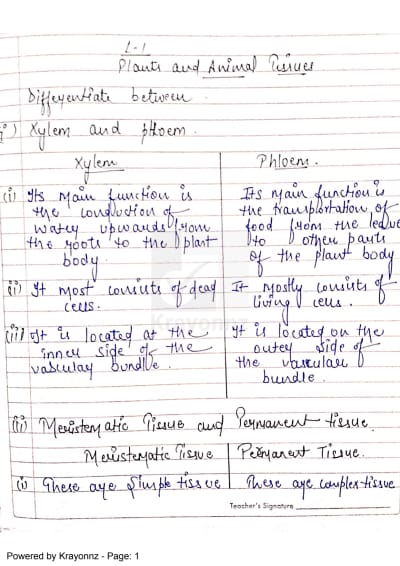 L-1
Plants and Animal Tissues
Differentiate between
i) Xylem and phloem.
Xylem
Phloem.
(i) Its main function is the conduction of water upwards from the roots to the plant body.
Its main function is the transplortation of food from the leave to other parts of the plant body
(ii) It most consists of dead cells.
It mostly consists of living cells.
(iii) It is located at the inner side of the vascular bundle.
It is located on the outer side of the vascular bundle.
Krayonnz
(ii) Meristematic Tissue and Permanent tissue.
Meristematic Tissue
Permanent Tissue.
(i) These are simple tissue
These are complex tissue
Teacher's Signature
Powered by Krayonnz - Page: 1